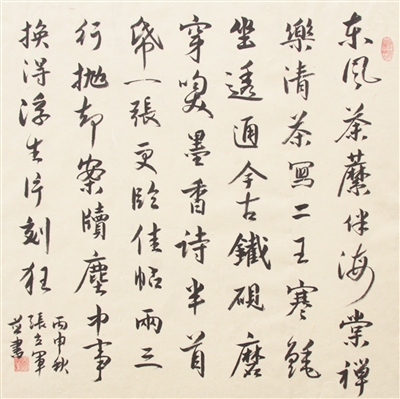 东风荼蘼伴海棠禅
樂清茶写二王寒毡
坐透通今古鐵硯磨
穿嗅墨香诗半首
帋一張更临佳帖兩三
行抛却案牘塵中事
換得浮生片刻狂
丙申秋
張立軍
並書